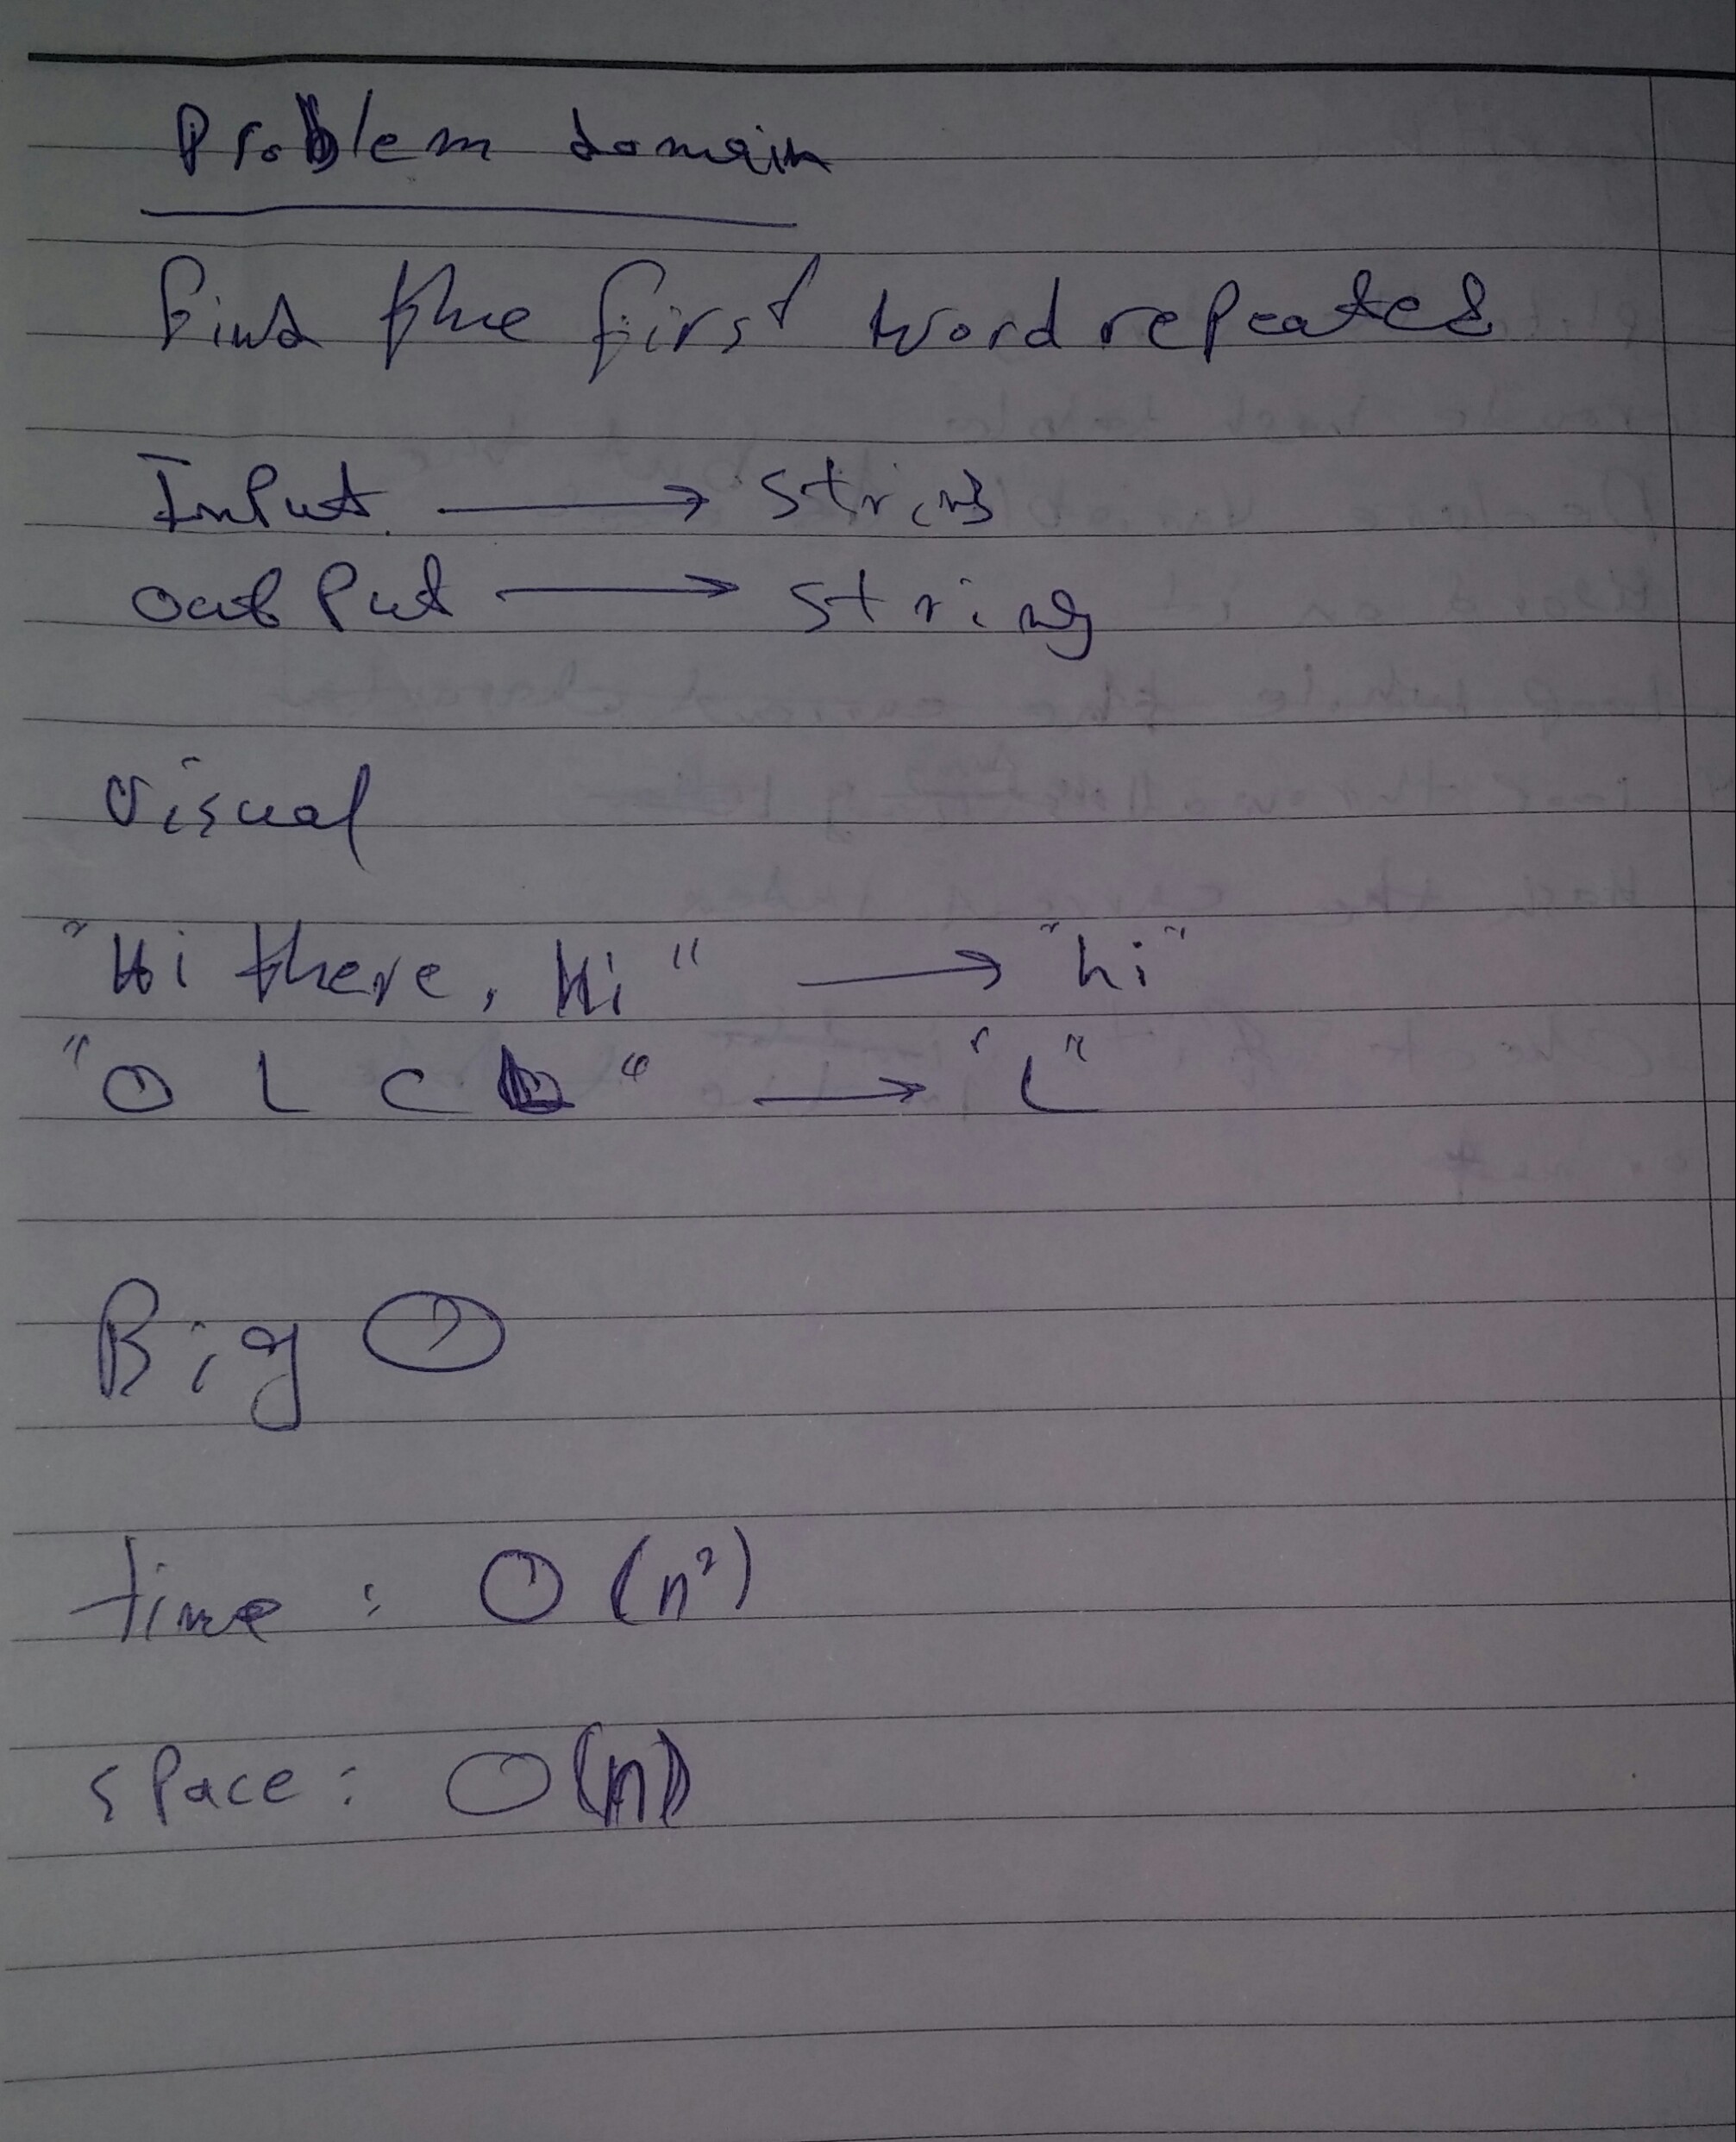 Problem domain
Find the first word repeated
Input → string
output → string
Visual
"Hi there, Hi" → "hi"
"O L C" → "L"
Big O
time : O (n²)
space : O(n)